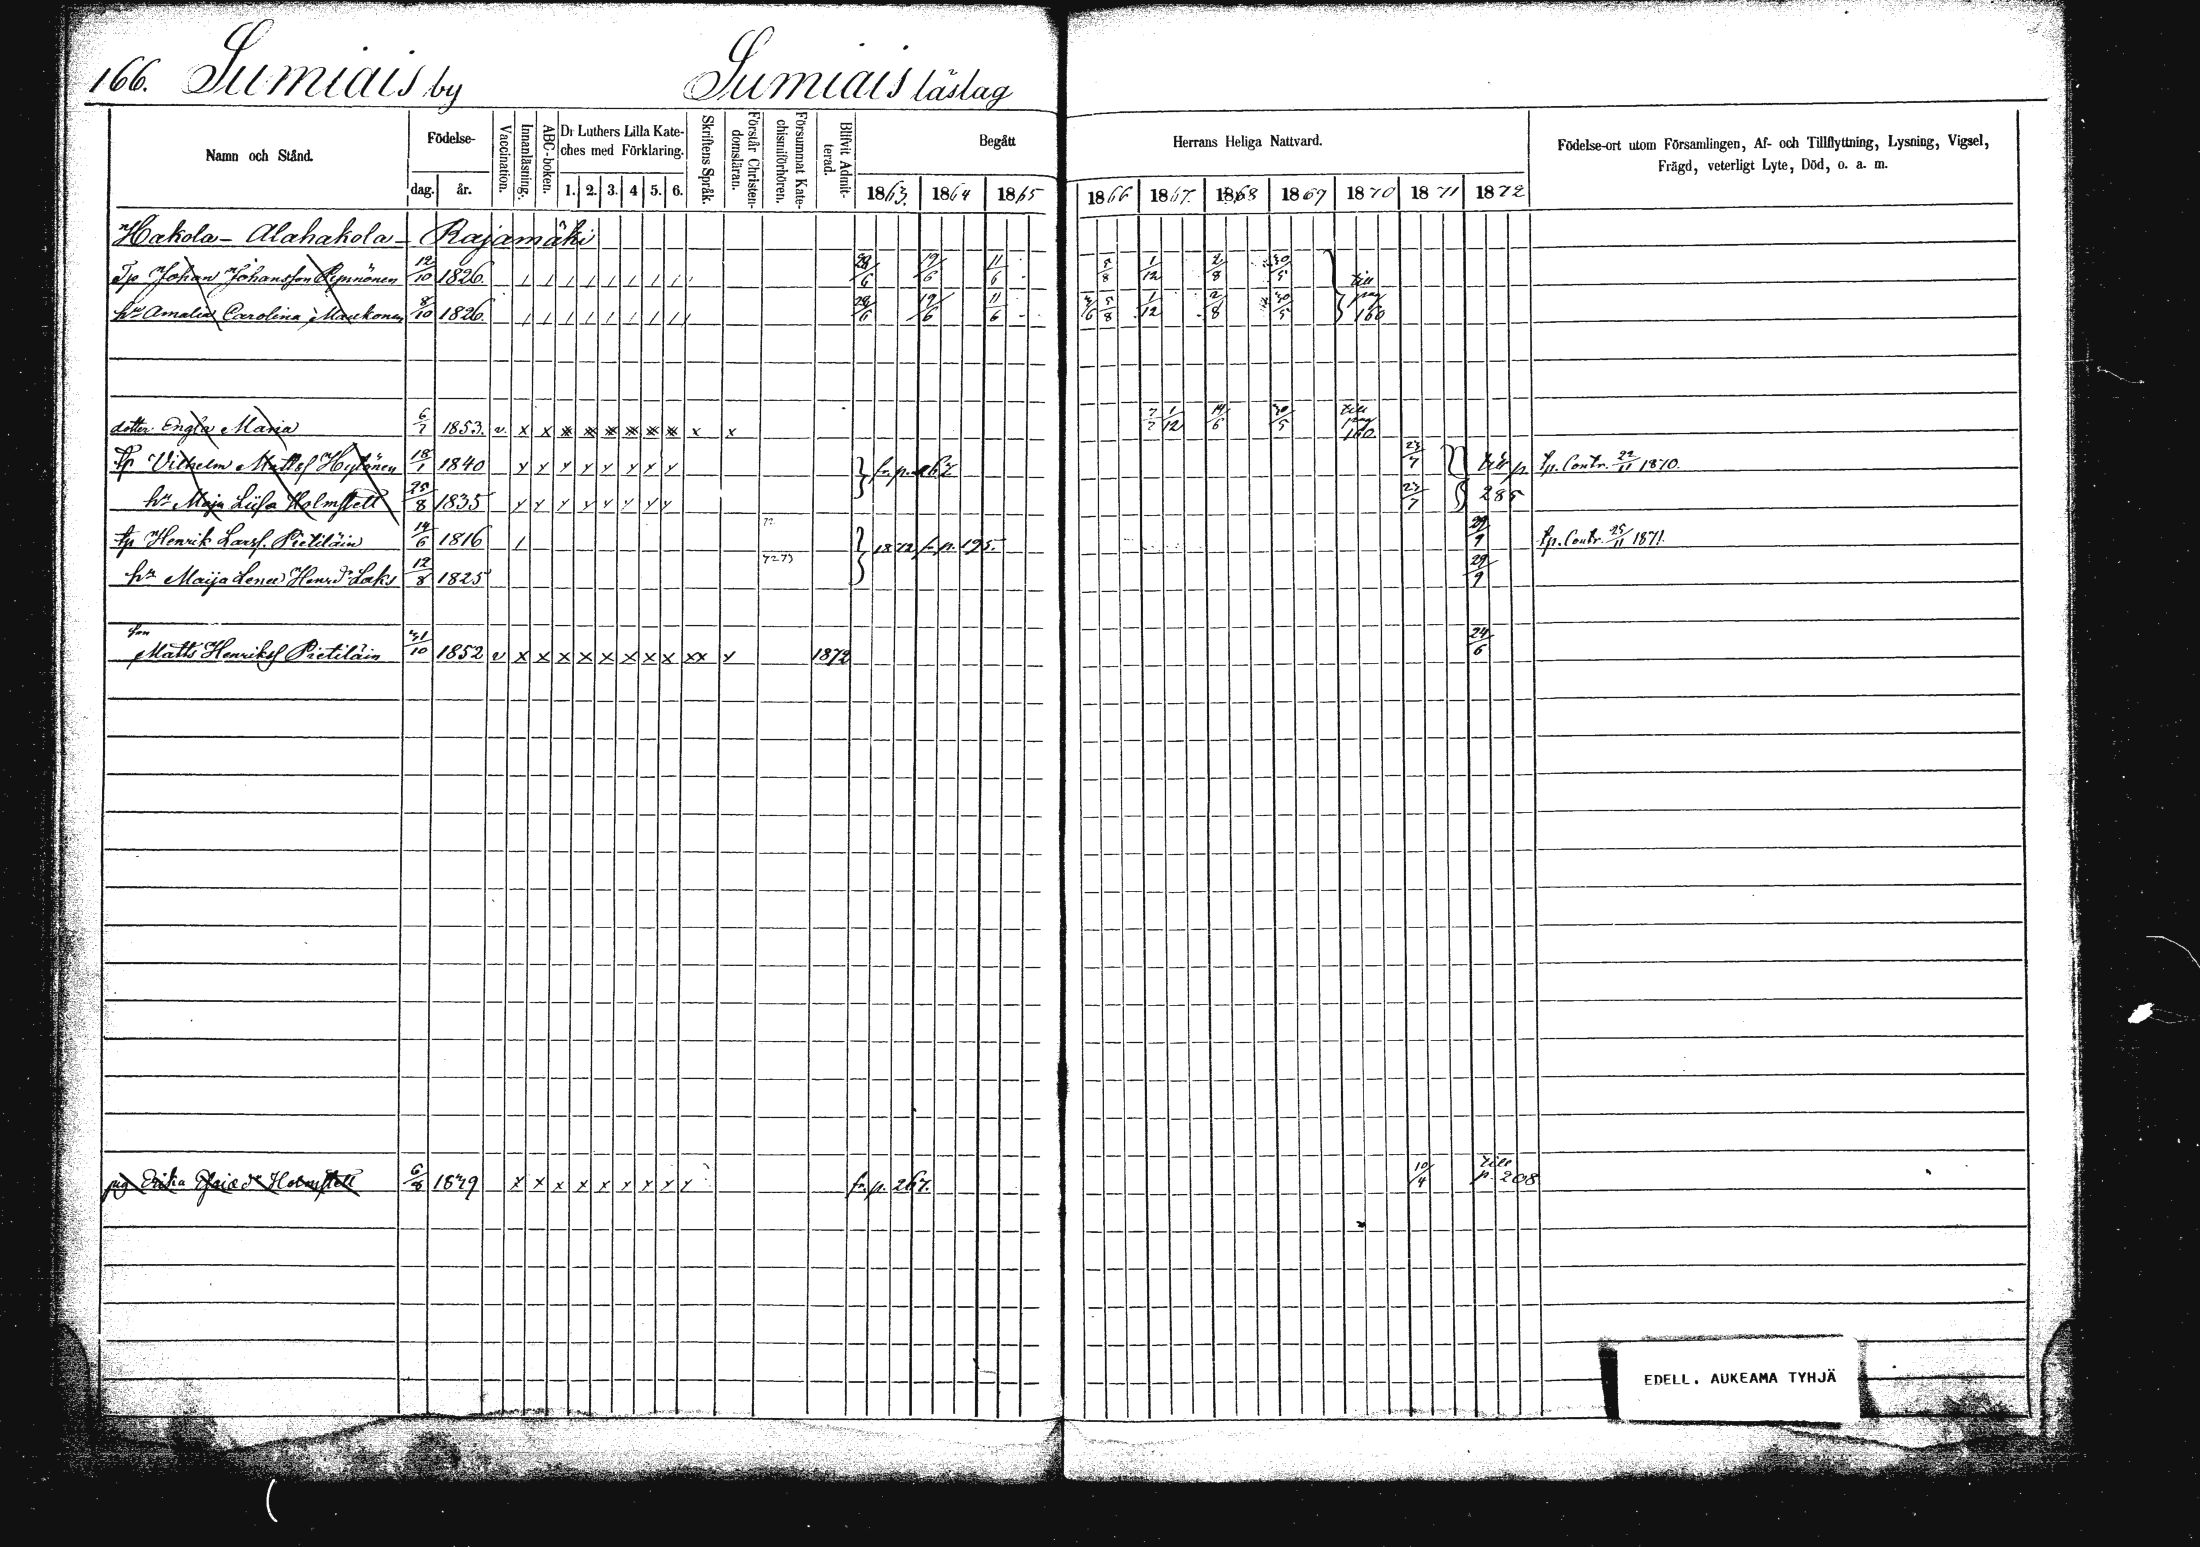 166. Sumiais by Sumiais läslag
Namn och Stånd.
Födelse-
dag. år.
Vaccination.
Innanläsning.
ABC-boken.
Dr Luthers Lilla Kate-
ches med Förklaring.
1. 2. 3. 4 5. 6.
Skriftens Språk.
Förstår Christen-
domsläran.
Försummat Kate-
chismiförhören.
Blifvit Admit-
terad.
Begått Herrans Heliga Nattvard.
1863. 1864 1865 1866 1867. 1868 1869 1870 1871 1872
Födelse-ort utom Församlingen, Af- och Tillflyttning, Lysning, Vigsel,
Frägd, veterligt Lyte, Död, o. a. m.
Hakola - Alahakola - Rajamäki
Tp Johan Johansson 12/10 1826 / / / / / / / / 28/6 19/6 11/6 5/8 1/12 2/8 30/5 till
hu Amalia Carolina Maukonen 8/10 1826 / / / / / / / / 28/6 19/6 11/6 5/8 1/12 2/8 30/5 pag 160
dotter Engla Maria 6/7 1853. v. x x x x x x x x x x 7/7 1/12 14/6 30/5 till pag 160
Tp Vilhelm Mattsf Hytönen 18/1 1840 y y y y y y y y fr. p. 267 23/7 till p tp. Contr. 22/11 1870.
hu Maja Liisa Holmstett 25/8 1835 y y y y y y y y 23/7 285
tp Henrik Larsf. Pietiläin 14/6 1816 / 1872 fr. p. 195. 29/9 tp. Contr. 25/11 1871.
hu Maija Lena Henrdr Laks 12/8 1825 72 73 29/9
son
Matts Henriksf Pietiläin 31/10 1852 v x x x x x x x x xx y 1872 24/6
pig Erika Holmstett 6/8 1849 x x x x x y y y fr. p. 267. 10/4 till p. 208
EDELL. AUKEAMA TYHJÄ